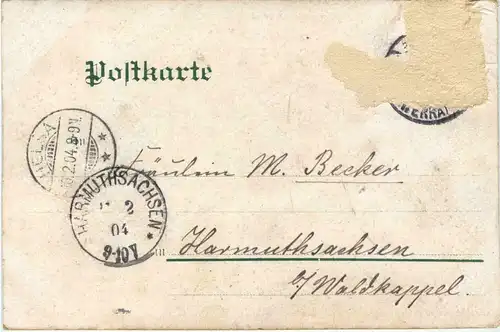 Postkarte
(WERRA)
HELSA
16.2.04.8-9V.
HARMUTHSACHSEN
2
04
9-10V
Fräulein M. Becker
Harmuthsachsen
b/ Waldkappel.